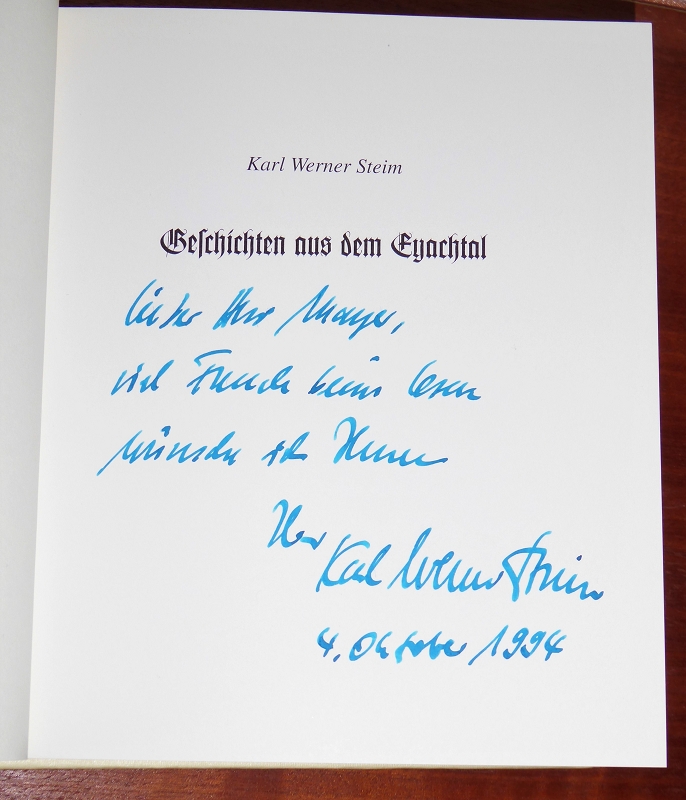 Karl Werner Steim
Geschichten aus dem Eyachtal
Lieber Herr Mayer,
viel Freude beim Lesen
wünsche ich Ihnen
Ihr
Karl Werner Steim
4. Oktober 1994